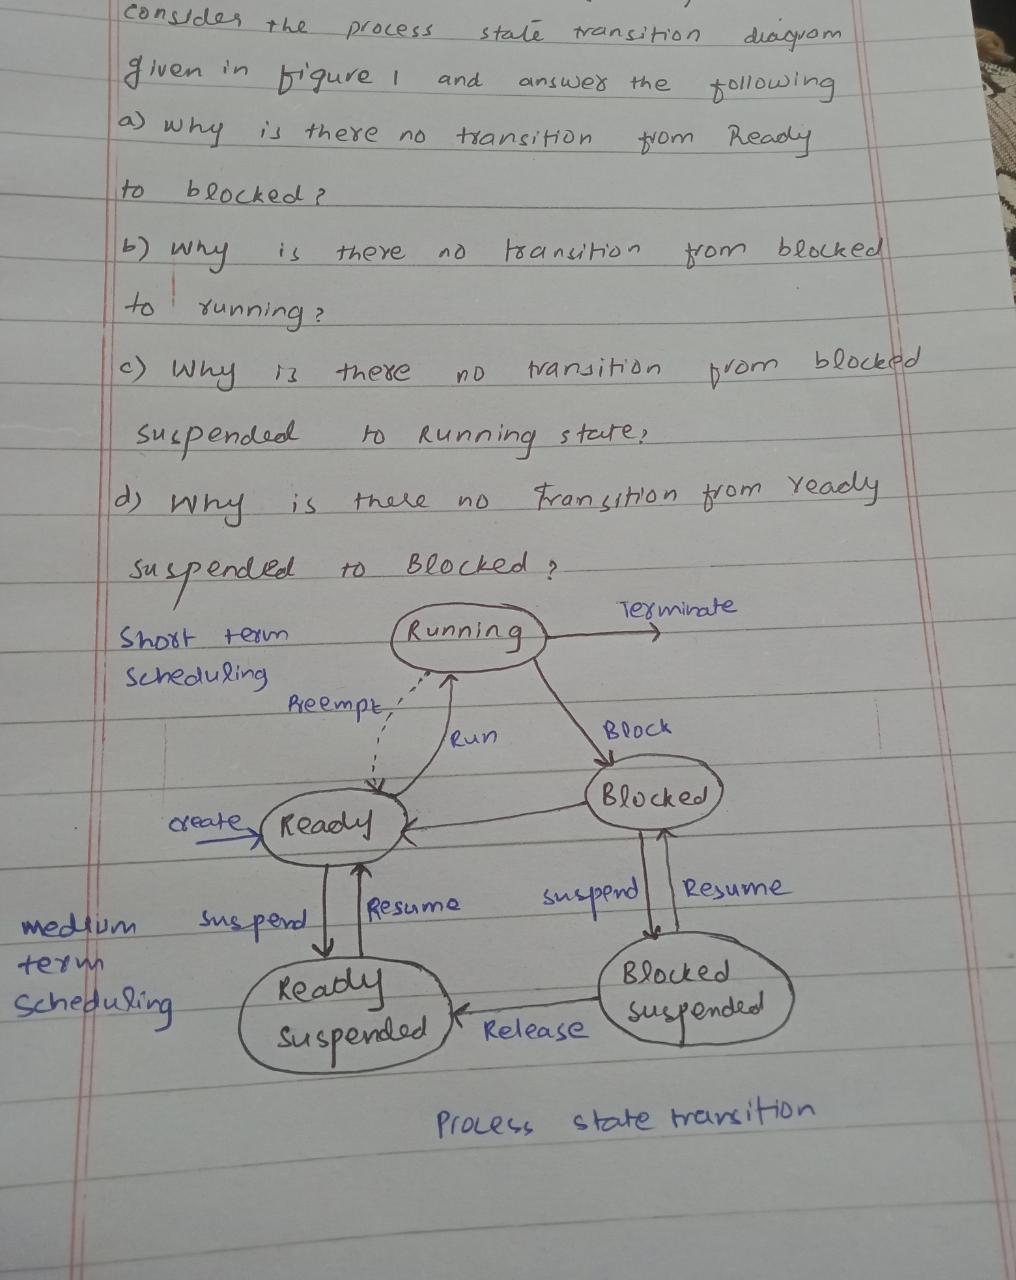 consider the process state transition diagram
given in figure 1 and answer the following
a) why is there no transition from Ready
to blocked?
b) why is there no transition from blocked
to running?
c) Why is there no transition from blocked
suspended to Running state?
d) Why is there no Transition from ready
suspended to Blocked?
Terminate
Short term
scheduling
Running
Preempt
Run
Block
Blocked
create
Ready
suspend
Resume
suspend
Resume
medium
term
scheduling
Ready
suspended
Release
Blocked
suspended
Process state transition